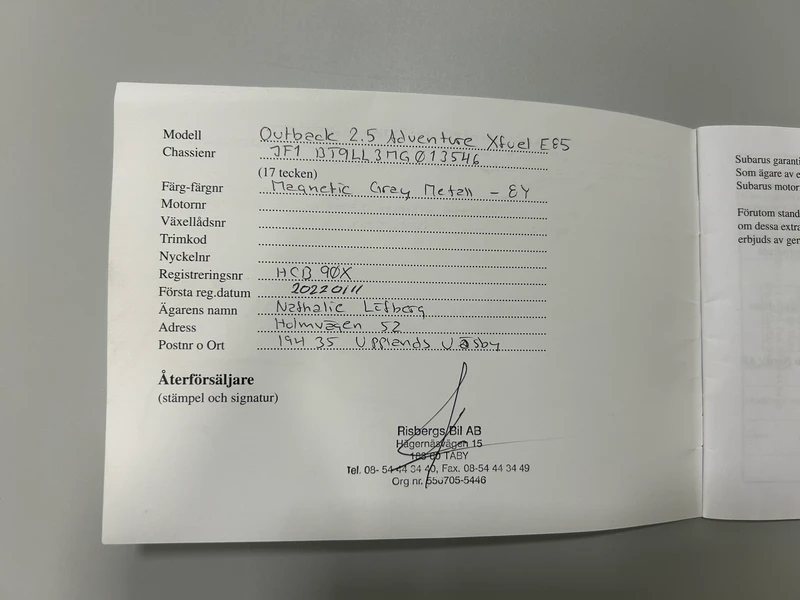 Modell Outback 2.5 Adventure Xfuel E85
Chassienr JF1 BT9LL3MG013546
(17 tecken)
Färg-färgnr Magnetic Gray Metall - 8Y
Motornr
Växellådsnr
Trimkod
Nyckelnr
Registreringsnr HCB 90X
Första reg.datum 20220111
Ägarens namn Nathalie Löfberg
Adress Holmvägen 52
Postnr o Ort 194 35 Upplands Väsby
Återförsäljare
(stämpel och signatur)
Risbergs Bil AB
Hägernäsvägen 15
TÄBY
Tel. 08-54 44 34 40, Fax. 08-54 44 34 49
Org nr. 556705-5446
Subarus garanti
Som ägare av e
Subarus motor
Förutom stand
om dessa extra
erbjuds av ger